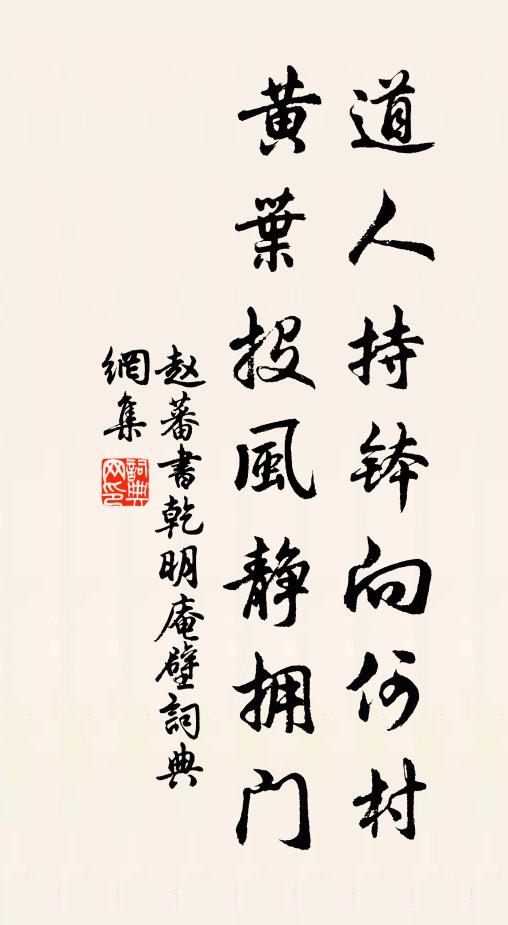 道人持钵向何村
黄葉投風静拥门
赵蕃書乾明庵壁詞典
網集
詞典
网印